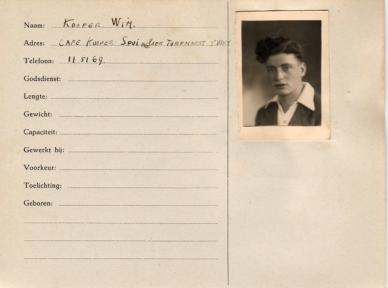 Naam: KUIPER WIM.
Adres: CAFE KUIPER SPUI
Telefoon: 11.51.69.
Godsdienst:
Lengte:
Gewicht:
Capaciteit:
Gewerkt bij:
Voorkeur:
Toelichting:
Geboren: